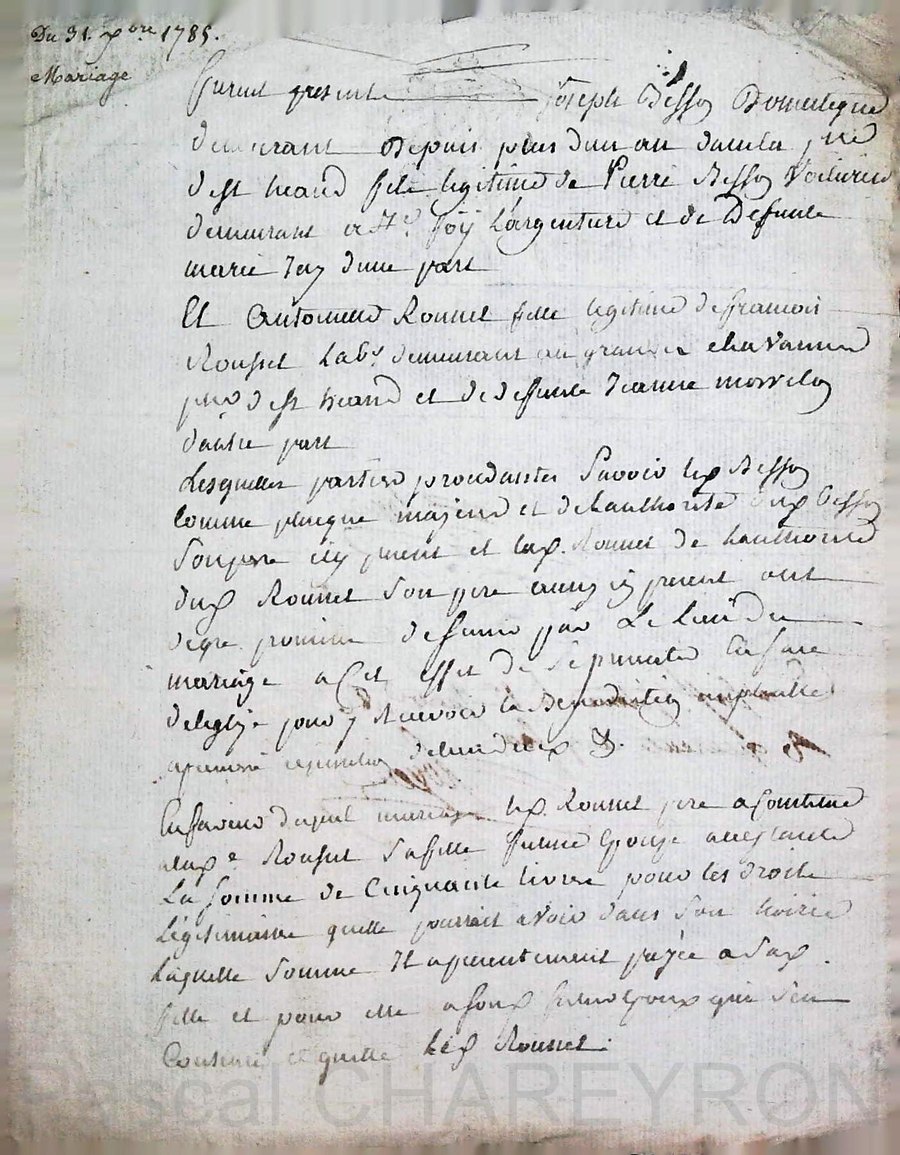 Du 31. xbre 1785.
Mariage
furent presents Joseph Besson Domestique
demeurant Depuis plus dun an dans la
dest heand fils legitime de Pierre Besson Voiturier
demeurant a Ste foÿ Largentiere et de Defunte
marie Jay dune part
Et Antoinette Rousset fille legitime de francois
Rousset Labr. demeurant au grandes chavannes
dest heand et de deffunte Jeanne
dautre part
Lesquelles parties procedantes Savoir led Besson
comme majeur et de Lauthorité dud Besson
Son pere icy present et lad. Rousset de Lauthorité
dud Rousset Son pere aussy icy present ont
de gre promis
mariage a Cet effet de Se presenter En face
deleglise pour y Recevoir la Benediction nuptiale
a premiere requisition de lun deux &.
En faveur duquel mariage led. Rousset pere a Constitué
alad e Rousset Sa fille future Epouse acceptante
La somme de Cinquante livres pour les droits
Legitimaires quelle pourrait avoir dans Son hoirie
Laquelle Somme Il a presentement payée a Sad.
fille et pour elle a Son futur Epoux qui Sen
Contente et quitte Led Rousset.
Pascal CHAREYRON